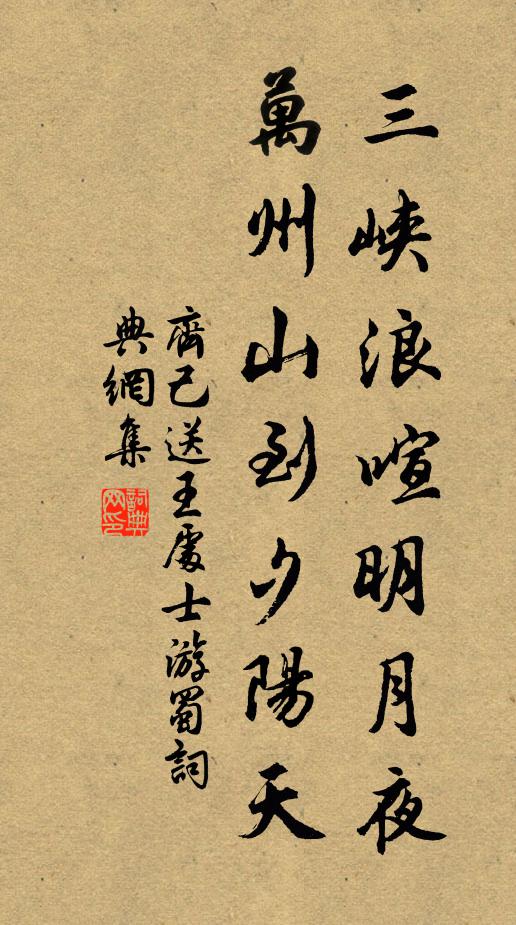 三峽浪喧明月夜
萬州山到夕陽天
齊己送王處士游蜀詞
典網集
詞典
网印